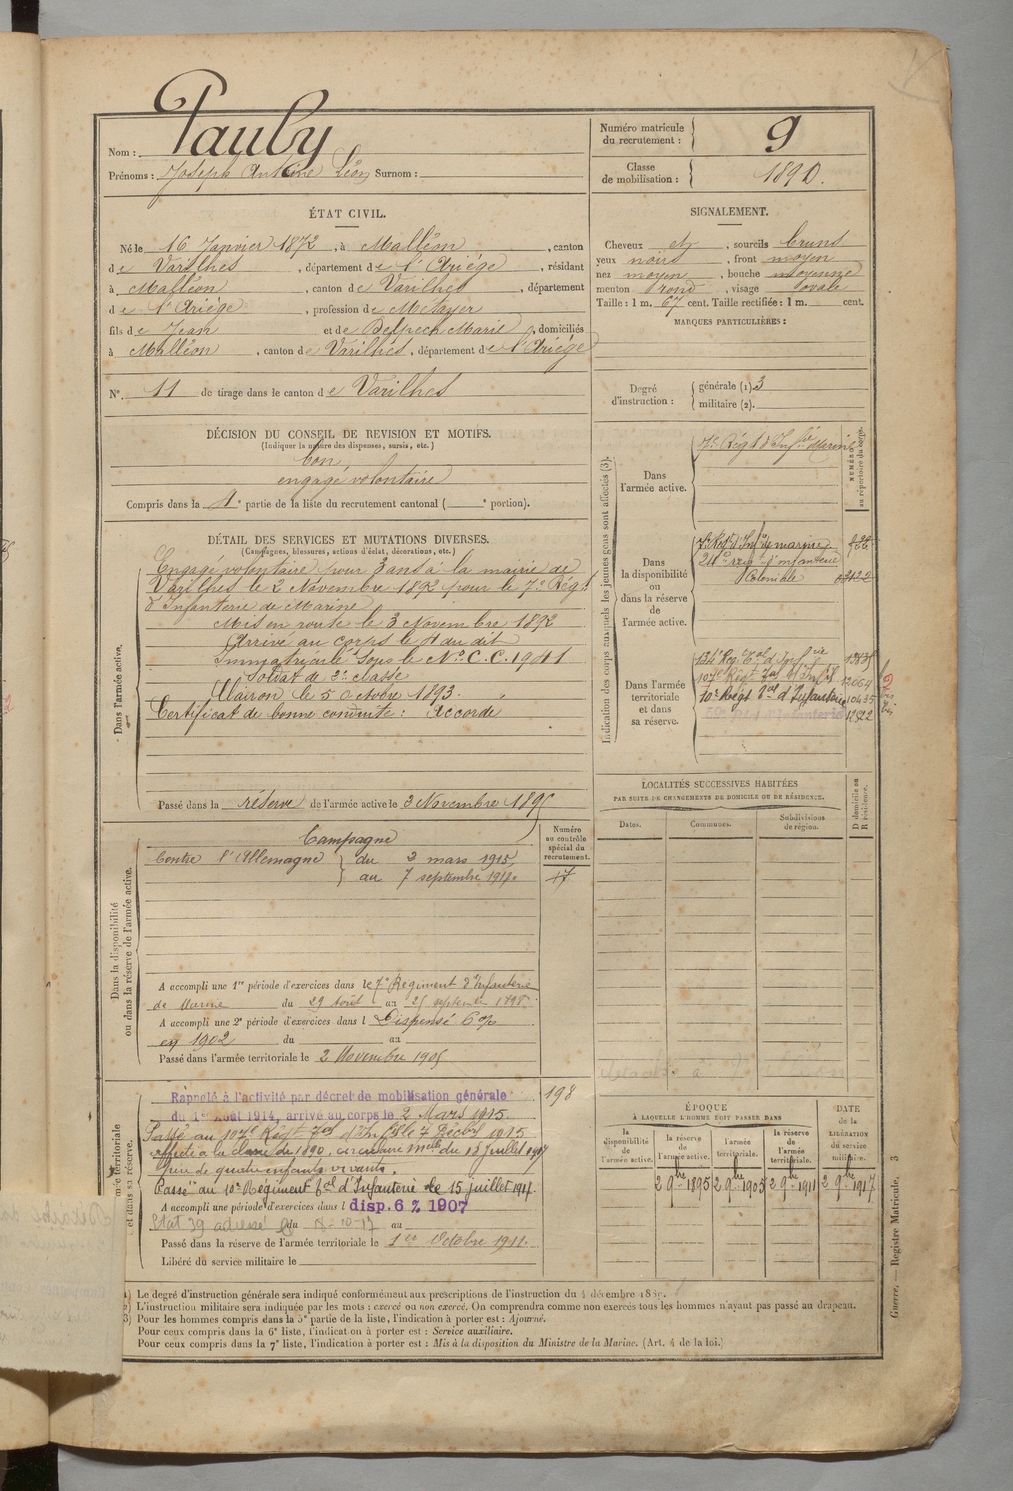 Nom : Pauly
Prénoms : Joseph Antoine Léon Surnom :
Numéro matricule du recrutement : 9
Classe de mobilisation : 1890.
ÉTAT CIVIL.
Né le 16 Janvier 1872, à Malléon, canton
de Varilhes, département de l'Ariège, résidant
à Malléon, canton de Varilhes, département
de l'Ariège, profession de Métayer
fils de Jean et de Delpech Marie, domiciliés
à Malléon, canton de Varilhes, département de l'Ariège
N° 11 de tirage dans le canton de Varilhes
SIGNALEMENT.
Cheveux et , sourcils bruns
yeux noirs , front moyen
nez moyen , bouche moyenne
menton rond , visage ovale
Taille : 1 m. 67 cent. Taille rectifiée : 1 m. cent.
MARQUES PARTICULIÈRES :
Degré d'instruction : générale (1). 3
militaire (2).
DÉCISION DU CONSEIL DE REVISION ET MOTIFS.
(Indiquer la nature des dispenses, sursis, etc.)
bon,
engagé volontaire
Compris dans la 4e partie de la liste du recrutement cantonal ( e portion).
DÉTAIL DES SERVICES ET MUTATIONS DIVERSES.
(Campagnes, blessures, actions d'éclat, décorations, etc.)
Dans l'armée active.
Engagé volontaire pour 3 ans à la mairie de
Varilhes le 2 Novembre 1892 pour le 7e Régt
d'Infanterie de Marine
Mis en route le 3 Novembre 1892
Arrivé au corps le 4 du dit
Immatriculé sous le N° C.C. 1941
Soldat de 2e classe
Clairon le 5 Octobre 1893.
Certificat de bonne conduite : Accordé
Passé dans la réserve de l'armée active le 2 Novembre 1895
Indication des corps auxquels les jeunes gens sont affectés (3).
NUMÉRO au répertoire du corps.
Dans l'armée active.
7e Régt d'Infie Marine
Dans la disponibilité ou dans la réserve de l'armée active.
7e Régt d'Infie de marine
24e régt d'infanterie
Coloniale
Dans l'armée territoriale et dans sa réserve.
134e Rég. tal d'Infie
107e Régt Tal d'Inf. 12064
10e Régt Tal d'Infanterie 10435
LOCALITÉS SUCCESSIVES HABITÉES
PAR SUITE DE CHANGEMENTS DE DOMICILE OU DE RÉSIDENCE.
D domicile ou R résidence.
Dates. Communes. Subdivisions de région.
Dans la disponibilité ou dans la réserve de l'armée active.
Numéro au contrôle spécial du recrutement.
Campagne
Contre l'Allemagne du 2 mars 1915,
au 7 septembre 1917.
17
A accompli une 1re période d'exercices dans le 7e Régiment d'Infanterie
de Marine du 29 Août au 25 septembre 1898
A accompli une 2e période d'exercices dans l Dispensé
en 1902 du au
Passé dans l'armée territoriale le 2 Novembre 1905
198
Rappelé à l'activité par décret de mobilisation générale
du 1er Août 1914, arrivé au corps le 2 Mars 1915
Passé au 107e Régt Tal d'Inf. le 7 Décbre 1915
affecté à la classe de 1890, circulaire melle du 13 juillet 1917
père de quatre enfants vivants.
Passé au 10e Régiment tal d'Infanterie le 15 juillet 1917.
A accompli une période d'exercices dans l disp. 6 % 1907
Etat 39 adressé le du 8-10-17 au
Passé dans la réserve de l'armée territoriale le 1er Octobre 1911.
Libéré du service militaire le
ÉPOQUE
À LAQUELLE L'HOMME DOIT PASSER DANS
la disponibilité de l'armée active.
la réserve de l'armée active.
l'armée territoriale.
la réserve de l'armée territoriale.
DATE de la LIBÉRATION du service militaire.
2 9bre 1895 2 9bre 1905 2 9bre 1911 2 9bre 1917
Guerre. — Registre Matricule. 3
1) Le degré d'instruction générale sera indiqué conformément aux prescriptions de l'instruction du 4 décembre 1889.
2) L'instruction militaire sera indiquée par les mots : exercé ou non exercé. On comprendra comme non exercés tous les hommes n'ayant pas passé au drapeau.
3) Pour les hommes compris dans la 5e partie de la liste, l'indication à porter est : Ajourné.
Pour ceux compris dans la 6e liste, l'indication à porter est : Service auxiliaire.
Pour ceux compris dans la 7e liste, l'indication à porter est : Mis à la disposition du Ministre de la Marine. (Art. 4 de la loi.)